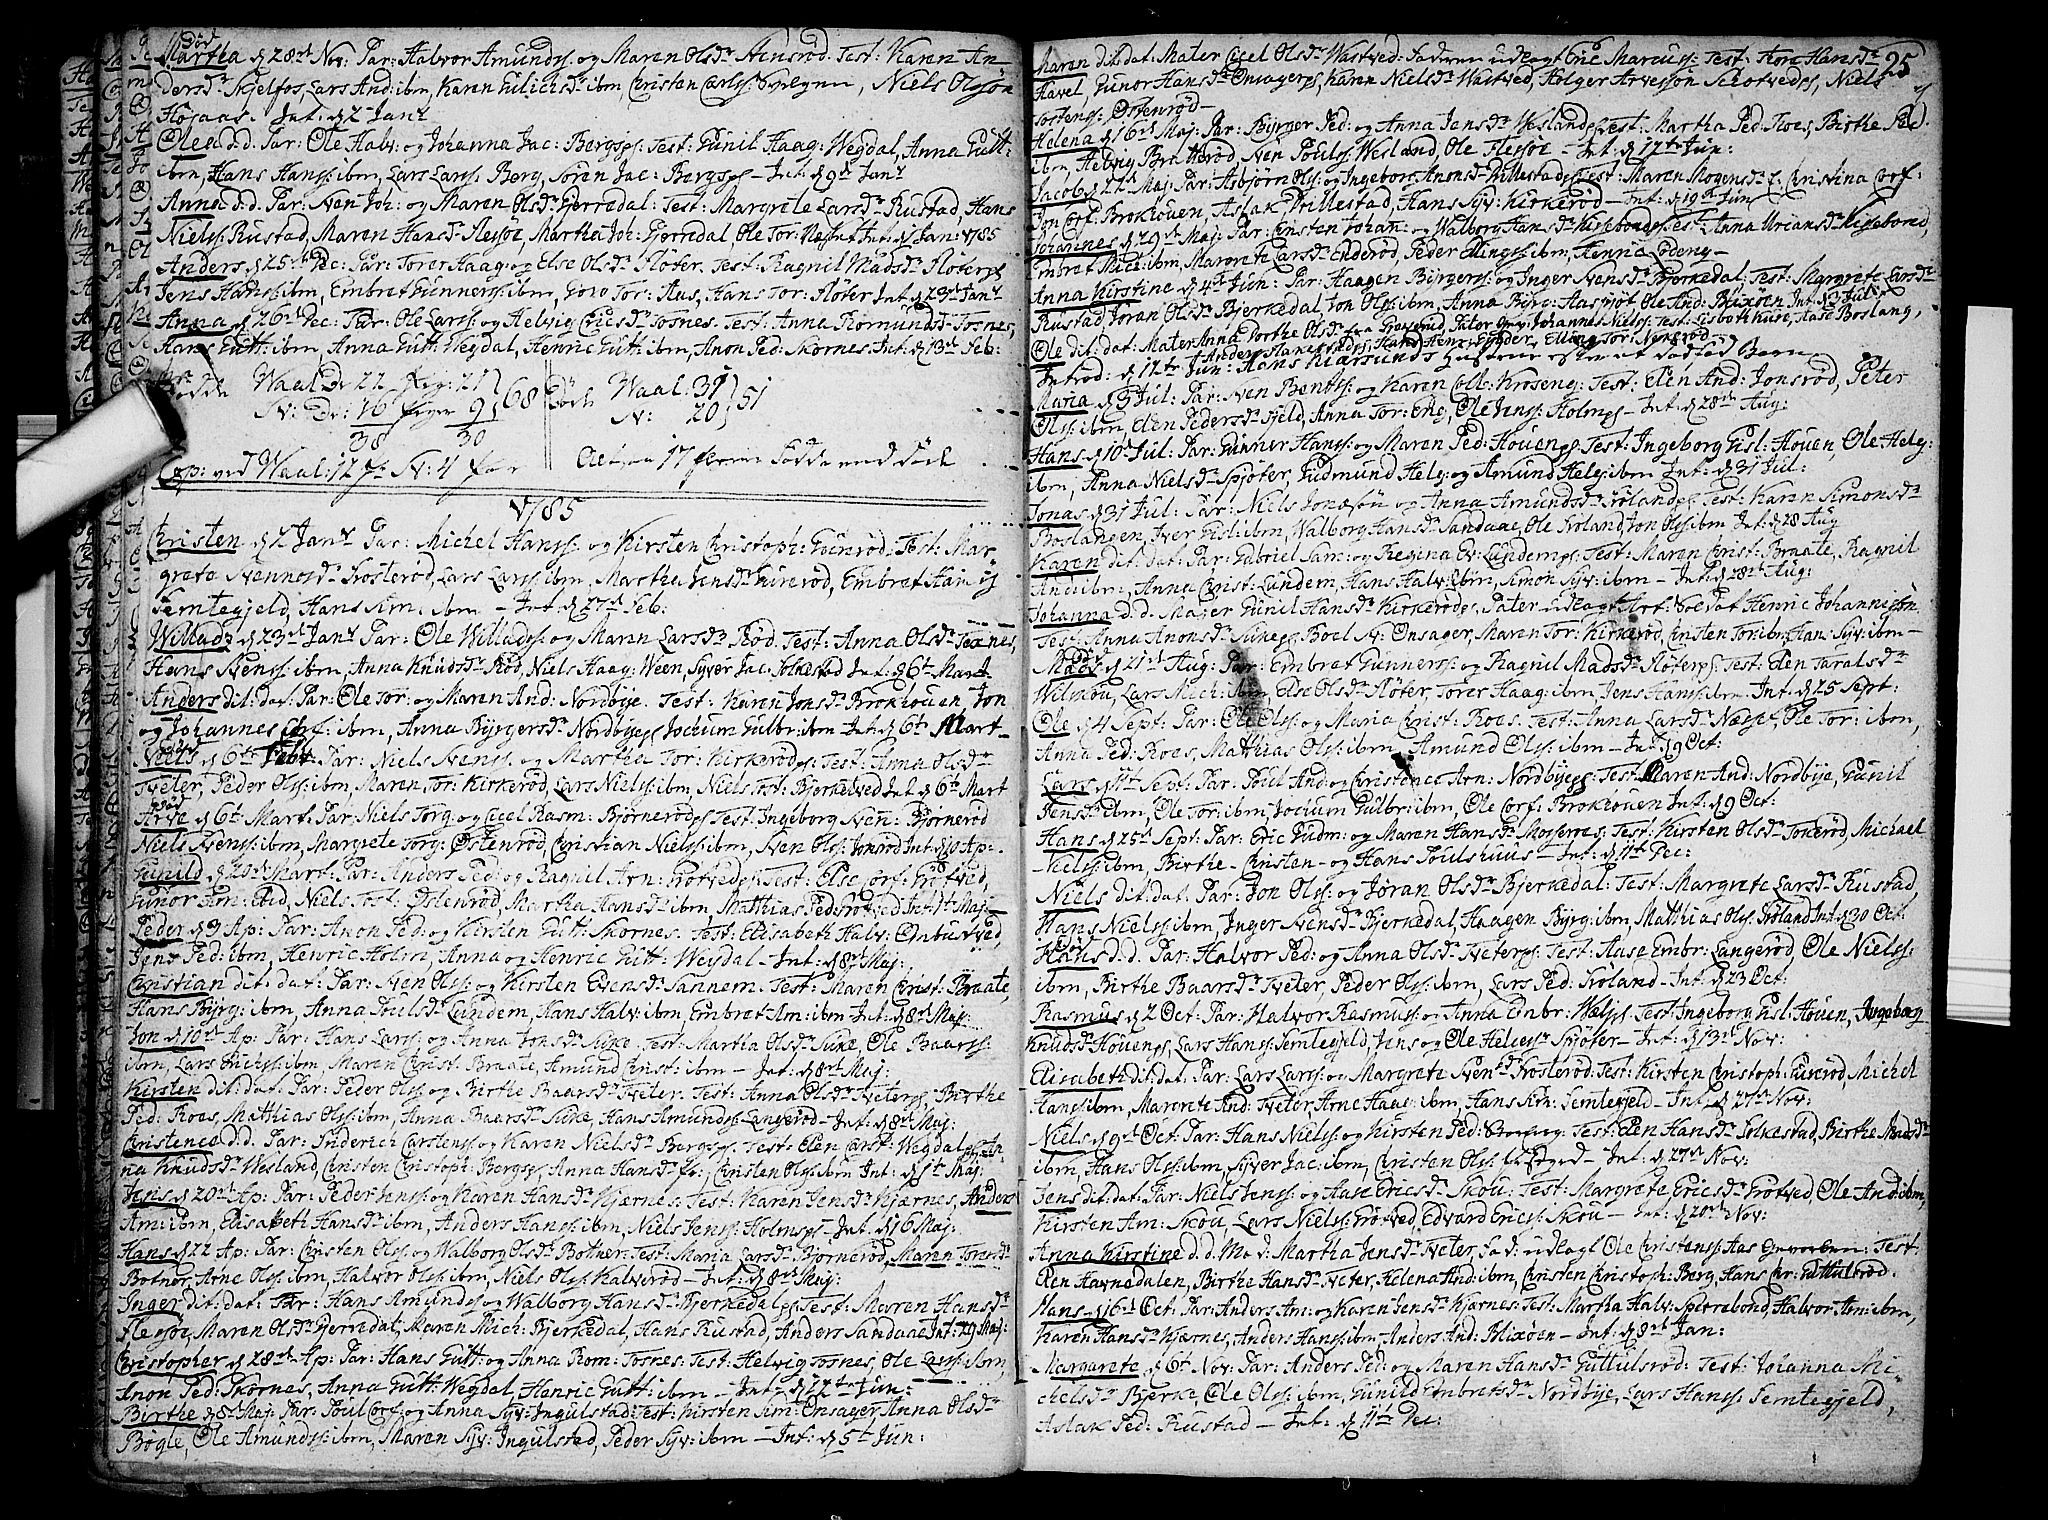 død
Martha d 28de Nov: Par: Halvor Amunds: og Maren Olsdr Test: Karen An-
dersdr Skjelfos, Lars And: ibm, Karen Gulichsdr ibm, Christen Carls: Niels Olssøn
Højaas. Int: d 2 Janv
Olea d.d. Par: Ole Halv: og Johanna Jac: Bergsp: Test: Gunil Haag: Wegdal, Anna Gutt:
ibm, Hans Hanss: ibm, Lars Larss: Berg, Søren Jac: Bergsp – Int: d 9de Janv
Anna d.d. Par: Sven Joh: og Maren Olsdr Gjerredal: Test: Margrete Larsdr Rustad, Hans
Nielss: Rustad, Maren Hansdr Flessøe, Martha Joh: Gjerredal Ole Tor: Int: d Jan: 1785
Anders d 25de Dec: Par: Torer Haag: og Else Olsdr Fløter. Test: Ragnil Madsdr Fløterp
Jens Hanss: ibm, Embret Gunnerss: ibm, Goro Tor: Aus, Hans Tor: Fløter Int: d 23de Janv
Anna d 26de Dec: Par: Ole Larss: og Helvig Ericsdr Tosnes. Test: Anna Romundsdr Tosnes,
Hans Gutt: ibm, Anna Gutt: Wegdal, Henric Gutt: ibm, Anon Ped: Skornes. Int: d 13de Feb:
Fødde Waal Dr 22 Piger: 21 } 68 Døde Waal: 31 } 51
N: Dr: 16 Piger 9 N: 20
38 30
Cop: ved Waal: 12 N: 4 Par 17 flere fødde end døde
1785
Christen d 2 Janv Par: Michel Hanss: og Kirsten Christoph: Test: Mar-
grete Svennesdr Frosterød, Lars Larss: ibm, Martha Jensdr Embret
Semtegjeld, Hans Sim: ibm – Int: d 27de Feb:
Willads d 23de Janv Par: Ole Willads: og Maren Larsdr Rød. Test: Anna Olsdr Tosnes,
Hans Svens: ibm, Anna Knudsdr Rød, Niels Haag: Ween, Syver Jac: Folkestad Int: d 6t Mart
Anders dit: dat: Par: Ole Tor: og Maren And: Nordbye. Test: Karen Jonsdr Brokhouen, Jon
og Johannes Corf: ibm, Anna Byrgersdr Nordbyep Jochum Gulbr: ibm Int: d 6t Mart –
død
Niels d 6t Febr: Par: Niels Svens: og Martha Tor: Kirkerødp: Test: Anna Olsdr
Tveter, Peder Olss: ibm, Maren Tor: Kirkerød, Lars Nielss: ibm, Niels Tost: Bjerketved Int: d 6t Mart
død
Arve d 6t Mart: Par: Niels Torg: og Cicel Rasm: Bjørnerødp: Test: Ingeborg Sven: Bjørnerød
Niels Svens: ibm, Margrete Torg: Østenrød, Christian Nielss: ibm, Sven Olss: Jonsrød Int: d 10 Ap:
Gunild d 20de Mart: Par: Anders Ped: og Ragnil Arn: Grøtvedp: Test: Else Corf: Grøtved,
Gunor Am: Eid, Niels Tost: Østenrød, Martha Hansdr ibm, Matthias Ped: Grøtved Int: 1t Maj
Peder d 3 Ap: Par: Anon Ped: og Kirsten Gutt: Skornes. Test: Elisabeth Halv: Onbustved,
Jens Ped: ibm, Henric Holm, Anna og Henric Gutt: Wegdal – Int: d 8de Maj:
Christian dit: dat: Par: Sven Olss: og Kirsten Evensdr Sannem. Test: Maren Christ: Braate,
Hans Byrg: ibm, Anna Poulsdr Lundem, Hans Halv: ibm, Embret Am: ibm Int: d 8de Maj:
Jon d 10de Ap: Par: Hans Larss: og Anna Jonsdr Suke. Test: Martha Olsdr Suke, Ole Baarss:
ibm, Lars Ericss: ibm, Maren Christ: Braate, Amund Christ: ibm – Int: d 8de Maj:
Kirsten dit: dat: Par: Peder Olss: og Birthe Baarsdr Tveter. Test: Anna Olsdr Tveterp, Birthe
Ped: Roes, Matthias Olss: ibm, Anna Baarsdr Suke, Hans Amunds: Langerød – Int: d 8de Maj:
Christence d.d. Par: Inderich Carstens: og Karen Nielsdr Bergsp: Test: Elen Carst: Wegdalsp, An-
na Knudsdr Wesland, Christen Christoph: Bergsp, Anna Hansdr Christen Olss: ibm Int: d Maj:
Jens d 20de Ap: Par: Peder Jens: og Karen Hansdr Kjærnes: Test: Karen Jensdr Kjærnes, Anders
Am: ibm, Elisabeth Hansdr ibm, Anders Hanss: ibm, Niels Jenss: Holmsp – Int: d 16 Maj:
Hans d 22 Ap: Par: Christen Olss: og Walborg Olsdr Botner: Test: Maria Larsdr Bjørnerød, Maren Toresdr
Botner, Arne Olss: ibm, Halvor Olss: ibm, Niels Olss: Kalverød – Int: d 8de Maj:
Inger dit: dat: Par: Hans Amunds: og Walborg Hansdr Bjerkedalsp: Test: Maren Hansdr
Flessøe, Maren Olsdr Gjerredal, Maren Mich: Bjerkedal, Hans Rustad, Anders Sandaae Int: 29 Maj:
Christopher d 28de Ap: Par: Hans Gutt: og Anna Rom: Tosnes: Test: Helvig Tosnes, Ole Larss: ibm,
Anon Ped: Skornes, Anna Gutt: Wegdal, Henric Gutt: ibm – Int: d 12te Jun:
Birthe d 8de Maj: Par: Poul Corf: og Anna Syv: Ingulstad: Test: Kirsten Sim: Onsager, Anna Olsdr
Bøgle, Ole Amunds: ibm, Maren Syv: Ingulstad, Peder Syv: ibm – Int: d 5t Jun:
25
Maren dit: dat: Mater Cicel Olsdr Wastved: Faderen udlagt Eric Marcuss: Test: Hansdr
Aavel, Gunor Hansdr Onsagerp, Karen Nielsdr Wastved, Holger Arvessøn Grøtvedp, Niels
Tostens: Østenrød –
Helena d 16de Maj: Par: Byrger Ped: og Anna Jensdr Weslandsp: Test: Martha Ped: Roes, Birthe Ped:
ibm, Helvig Bratterød, Sven Poulss: Wesland, Ole Flessøe – Int: d 12te Jun:
Jacob d 22de Maj: Par: Asbjørn Olss: og Ingeborg Anonsdr Willestadsp: Test: Maren Mogensdr Christina Corf:
Jon Corf: Brokhouen, Aslak Willestad, Hans Syv: Kirkerød – Int: d 19de Jun
Johannes d 29de Maj: Par: Christen Johan: og Walborg Hansdr Kisebondsp: Test: Anna Uriansdr Kisebond,
Embret Mich: ibm, Margrete Larsdr Enderød, Peder Ellingss: ibm, Henric
Anna Kirstine d 4de Jun: Par: Haagen Byrgers: og Inger Svensdr Bjerkedal: Test: Margrete Larsdr
Rustad, Jøran Olsdr Bjerkedal, Jon Olss: ibm, Anna Byrg: Aasprøt Ole And: Blixøen Int: d 3 Jul:
Ole dit: dat: Mater Anna Dorthe Olsdr fra Pater Johannes Nielss: Test: Lisbeth Kuse, Aase Boslang,
Anders Hans Elling Tor: Nenerød
Introd: d 12te Jun: Hans hustrue efter et dødfød Barn
Maria d 3 Jul: Par: Sven Bentss: og Karen Coll: Kroseng: Test: Elen And: Jonsrød, Peter
Olss: ibm, Elen Pedersdr Fjeld, Anna Tor: Eng, Ole Jenss: Holmsp – Int: d 28de Aug:
Hans d 10de Jul: Par: Gunner Hanss: og Maren Ped: Houensp: Test: Ingeborg Gisl: Houen, Ole Helg:
ibm, Anna Nielsdr Spjøter, Gudmund Helg: og Amund Helg: ibm – Int: d 31 Jul:
Jonas d 31 Jul: Par: Niels Jonasøn og Anna Amundsdr Frølandsp: Test: Karen Simonsdr
Boslangen, Iver Gisl: ibm, Walborg Hansdr Sandaae, Ole Frøland, Jon Olss: ibm Int: d 28 Aug
Karen dit: dat: Par: Gabriel Sam: og Regina Ev: Lundemsp: Test: Maren Christ: Braate, Ragnil
And: ibm, Anna Christ: Lundem, Hans Halv: ibm, Simon Syv: ibm – Int: d 28de Aug:
Johanna d.d. Mater Gunil Hansdr Kirkerødp, Pater udlagt Art: Soldat Henric Johannissøn
Test: Anna Anonsdr Boel Sy: Onsager, Maren Tor: Kirkerød, Christen Tor: ibm, Hans Syv: ibm –
død
Mads d 21de Aug: Par: Embret Gunnerss: og Ragnil Madsdr Fløterp: Test: Elen Taralsdr
Wilskou, Lars Mich: ibm Else Olsdr Fløter, Torer Haag: ibm, Jens Hanss: ibm. Int: d 25 Sept:
Ole d 4 Sept: Par: Ole Olss: og Maria Christ: Roes. Test: Anna Larsdr Næsset, Ole Tor: ibm,
Anna Ped: Roes, Matthias Olss: ibm, Amund Olss: ibm – Int: d 9 Oct:
Lars d 11te Sept: Par: Poul And: og Christence Arn: Nordbyep: Test: Maren And: Nordbye, Gunil
Jensdr ibm, Ole Tor: ibm, Jochum Gulbr: ibm, Ole Corf: Brokhouen Int: d 9 Oct:
Hans d 25de Sept: Par: Eric Gudm: og Maren Hansdr Mosseros: Test: Kirsten Olsdr Tonerød, Michael
Nielss: ibm, Birthe – Christen – og Hans Poulshuus – Int: d 11te Dec:
Niels dit: dat: Par: Jon Olss: og Jøran Olsdr Bjerkedal: Test: Margrete Larsdr Rustad,
Hans Nielss: ibm, Inger Svensdr Bjerkedal, Haagen Byrg: ibm, Matthias Olss: Frøland Int: d 30 Oct:
død
Hans d.d. Par: Halvor Ped: og Anna Olsdr Tveterp: Test: Aase Embr: Langerød, Ole Nielss:
ibm, Birthe Baarsdr Tveter, Peder Olss: ibm, Lars Ped: Frøland – Int: d 23 Oct:
Rasmus d 2 Oct: Par: Halvor Rasmuss: og Anna Embr: Test: Ingeborg Gisl: Houen, Ingeborg
Knudsdr Houensp, Lars Hanss: Semtegjeld, Jens og Ole Helgess: Spjøter – Int: d 13de Nov:
Elisabeth dit: dat: Par: Lars Larss: og Margrete Svensdr Frosterød: Test: Kirsten Christoph: Michel
Hanss: ibm, Margrete And: Tveter, Arne Haag: ibm, Hans Sim: Semtegjeld – Int: d 27de Nov:
Niels d 9de Oct: Par: Hans Nielss: og Kirsten Ped: Test: Elen Hansdr Folkestad, Birthe Madsdr
ibm, Hans Olss: ibm, Syver Jac: ibm, Christen Olss: – Int: d 27de Nov:
Jens dit: dat: Par: Niels Jenss: og Aase Ericsdr Skou: Test: Margrete Ericsdr Grøtved, Ole And: ibm,
Kirsten Am: Skou, Lars Nielss: Grøtved, Edvard Ericss: Skou – Int: d 20de Nov:
Anna Kirstine d.d. Mad: Martha Jensdr Tveter, Fad: udlagt Ole Christenss: Aas Test:
Elen Havnedalen, Birthe Hansdr Tveter, Helena And: ibm, Christen Christoph: Berg, Hans Chr: Guttulsrød.
Hans d 16de Oct: Par: Anders Am: og Karen Jensdr Kjærnes: Test: Martha Halv: Spirrebond, Halvor Am: ibm,
Karen Hansdr Kjærnes, Anders Hanss: ibm – Anders And: Blixøen – Int: d 8de Jan:
Margarete d 6t Nov: Par: Anders Ped: og Maren Hansdr Guttulsrød: Test: Johanna Mi-
chelsdr Bjerke, Ole Olss: ibm, Gunild Embretsdr Nordbye, Lars Hanss: Semtegjeld,
Aslak Ped: Rustad – Int: d 11te Dec: